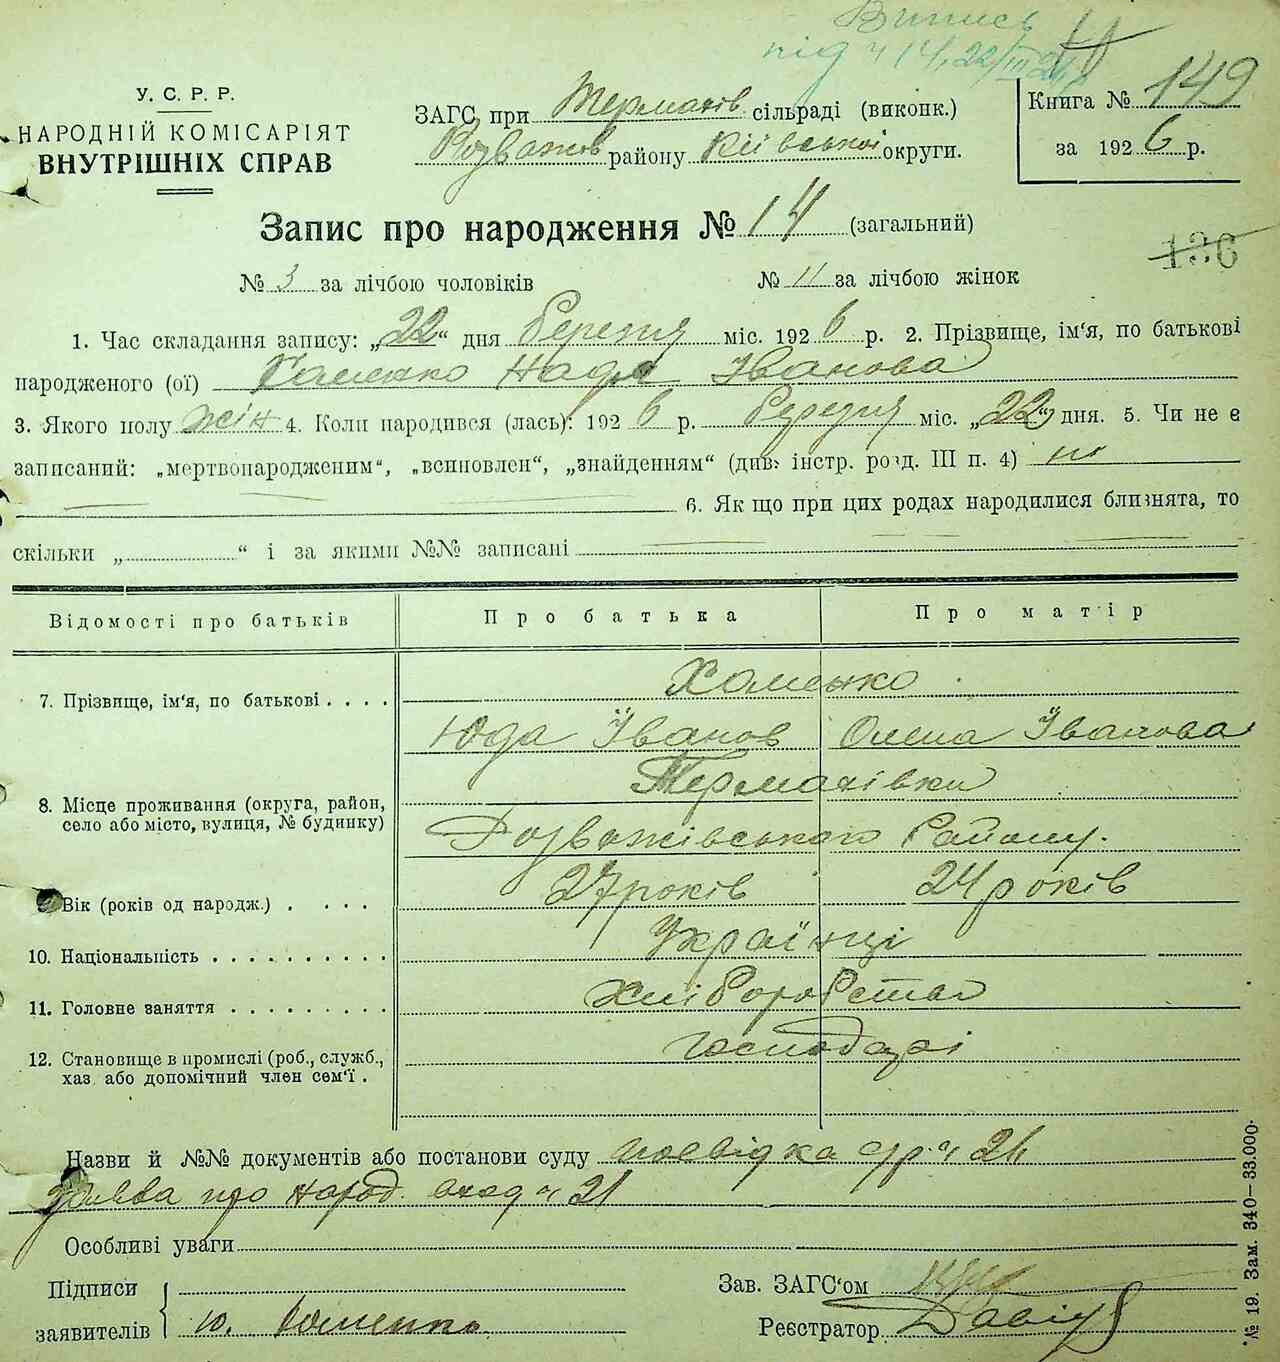 Випись
під ч 14, 22/III 26 р
У. С. Р. Р.
НАРОДНІЙ КОМІСАРІЯТ
ВНУТРІШНІХ СПРАВ
ЗАГС при Термахів сільраді (виконк.)
Розважів району Київської округи.
Книга № 149
за 1926 р.
Запис про народження № 14 (загальний)
136
№ 3 за лічбою чоловіків № 11 за лічбою жінок
1. Час складання запису: „22“ дня березня міс. 1926 р. 2. Прізвище, ім'я, по батькові
народженого (ої) Хоменко Надя Іванова
3. Якого полу жін 4. Коли народився (лась): 1926 р. березня міс. „22“ дня. 5. Чи не є
записаний: „мертвонародженим“, „всиновлен“, „знайденням“ (див. інстр. розд. III п. 4) ні
6. Як що при цих родах народилися близнята, то
скільки „ “ і за якими №№ записані
Відомості про батьків Про батька Про матір
7. Прізвище, ім'я, по батькові . . . . Хоменко
Юда Іванов Олена Іванова
Термахівки
8. Місце проживання (округа, район,
село або місто, вулиця, № будинку)
Розважівського Району.
Вік (років од народж.) . . . . 27 років 24 років
10. Національність . . . . . . . . . . Українці
11. Головне заняття . . . . . . . . . Хліборобства
12. Становище в промислі (роб., служб.,
хаз. або допомічний член сем'ї . господарі
Назви й №№ документів або постанови суду посвідка с/р. ч 26
заява про народ. вход ч 21
Особливі уваги
Підписи
заявителів Ю. Хоменко
Зав. ЗАГС'ом
Реєстратор
№ 19. Зам. 340—33.000.